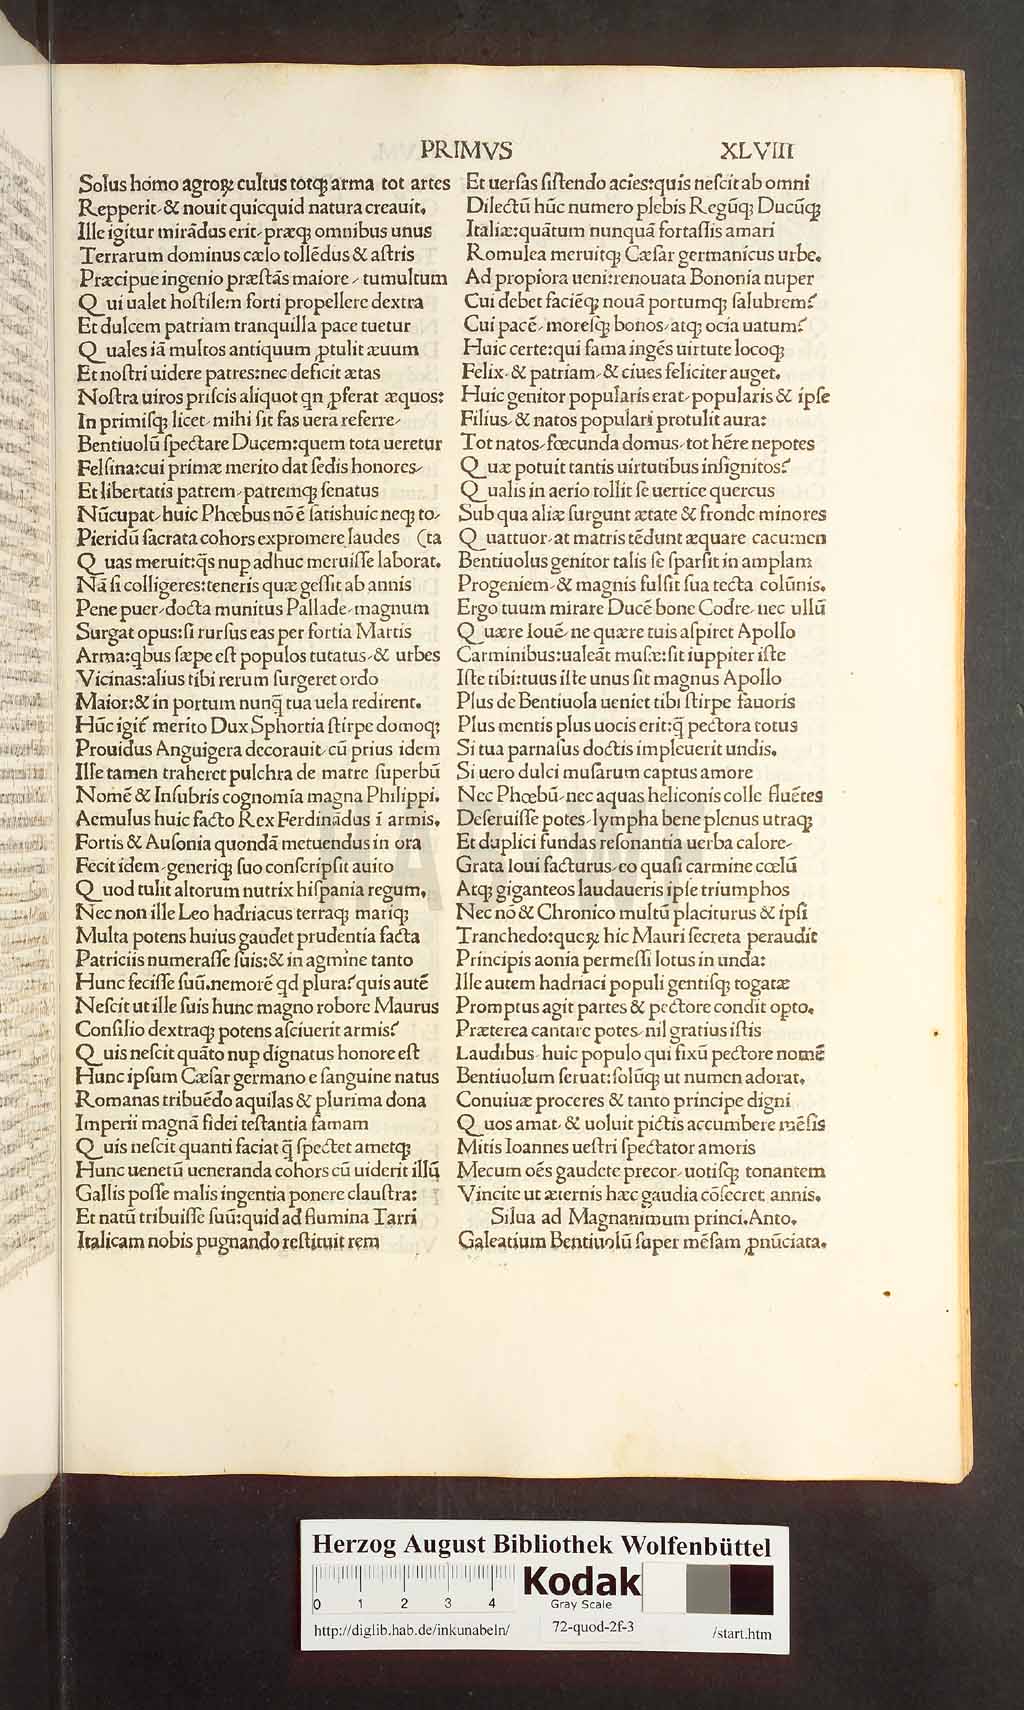 PRIMVS
XLVIII
Solus homo agroꝝ cultus totqꝫ arma tot artes
Repperit & nouit quicquid natura creauit.
Ille igitur mirādus erit præqꝫ omnibus unus
Terrarum dominus cælo tollēdus & astris
Præcipue ingenio præstās maiore tumultum
Qui ualet hostilem forti propellere dextra
Et dulcem patriam tranquilla pace tuetur
Quales iā multos antiquum ꝓtulit æuum
Et nostri uidere patres:nec deficit ætas
Nostra uiros priscis aliquot qn ꝓferat æquos:
In primisqꝫ licet mihi sit fas uera referre
Bentiuolū spectare Ducem:quem tota ueretur
Felsina:cui primæ merito dat sedis honores
Et libertatis patrem patremqꝫ senatus
Nūcupat huic Phœbus nō ē satis huic neqꝫ to-
Pieridū sacrata cohors expromere laudes (ta
Quas meruit:q̄s nup adhuc meruisse laborat.
Nā si colligeres:teneris quæ gessit ab annis
Pene puer docta munitus Pallade magnum
Surgat opus:si rursus eas per fortia Martis
Arma:qbus sæpe est populos tutatus & urbes
Vicinas:alius tibi rerum surgeret ordo
Maior:& in portum nunq̄ tua uela redirent.
Hūc igit̄ merito Dux Sphortia stirpe domoqꝫ
Prouidus Anguigera decorauit cū prius idem
Ille tamen traheret pulchra de matre superbū
Nomē & Insubris cognomīa magna Philippi.
Aemulus huic facto Rex Ferdinādus ī armis.
Fortis & Ausonia quondā metuendus in ora
Fecit idem generiqꝫ suo conscripsit auito
Quod tulit altorum nutrix hispania regum.
Nec non ille Leo hadriacus terraqꝫ mariqꝫ
Multa potens huius gaudet prudentia facta
Patriciis numerasse suis:& in agmine tanto
Hunc fecisse suū.nemorē qd plura? quis autē
Nescit ut ille suis hunc magno robore Maurus
Consilio dextraqꝫ potens asciuerit armis?
Quis nescit quāto nup dignatus honore est
Hunc ipsum Cæsar germano e sanguine natus
Romanas tribuēdo aquilas & plurima dona
Imperii magnā fidei testantia famam
Quis nescit quanti faciat q̄ spectet ametqꝫ
Hunc uenetū ueneranda cohors cū uiderit illū
Gallis posse malis ingentia ponere claustra:
Et natū tribuisse suū:quid ad flumina Tarri
Italicam nobis pugnando restituit rem
Et uersas sistendo acies:quis nescit ab omni
Dilectū hūc numero plebis Regūqꝫ Ducūqꝫ
Italiæ:quātum nunquā fortassis amari
Romulea meruitqꝫ Cæsar germanicus urbe.
Ad propiora ueni:renouata Bononia nuper
Cui debet faciēqꝫ nouā portumqꝫ salubrem?
Cui pacē moresqꝫ bonos atqꝫ ocia uatum?
Huic certe:qui fama ingēs uirtute locoqꝫ
Felix & patriam & ciues feliciter auget.
Huic genitor popularis erat popularis & ipse
Filius & natos populari protulit aura:
Tot natos fœcunda domus tot hēre nepotes
Quæ potuit tantis uirtutibus insignitos?
Qualis in aerio tollit se uertice quercus
Sub qua aliæ surgunt ætate & fronde minores
Quattuor at matris tēdunt æquare cacumen
Bentiuolus genitor talis se sparsit in amplam
Progeniem & magnis fulsit sua tecta colūnis.
Ergo tuum mirare Ducē bone Codre nec ullū
Quære Iouē ne quære tuis aspiret Apollo
Carminibus:ualeāt musæ:sit iuppiter iste
Iste tibi:tuus iste unus sit magnus Apollo
Plus de Bentiuola ueniet tibi stirpe fauoris
Plus mentis plus uocis erit:q̄ pectora totus
Si tua parnasus doctis impleuerit undis.
Si uero dulci musarum captus amore
Nec Phœbū nec aquas heliconis colle fluētes
Deseruisse potes lympha bene plenus utraqꝫ
Et duplici fundas resonantia uerba calore
Grata Ioui facturus eo quasi carmine cœlū
Atqꝫ giganteos laudaueris ipse triumphos
Nec nō & Chronico multū placiturus & ipsi
Tranchedo:queꝝ hic Mauri secreta peraudit
Principis aonia permessi lotus in unda:
Ille autem hadriaci populi gentisqꝫ togatæ
Promptus agit partes & pectore condit opto.
Præterea cantare potes nil gratius istis
Laudibus huic populo qui fixū pectore nomē
Bentiuolum seruat:solūqꝫ ut numen adorat.
Conuiuæ proceres & tanto principe digni
Quos amat & uoluit pictis accumbere mēsis
Mitis Ioannes uestri spectator amoris
Mecum oēs gaudete precor uotisqꝫ tonantem
Vincite ut æternis hæc gaudia cōsecret annis.
Silua ad Magnanimum princi.Anto.
Galeatium Bentiuolū super mēsam ꝓnūciata.
Herzog August Bibliothek Wolfenbüttel
0 1 2 3 4
Kodak
Gray Scale
http://diglib.hab.de/inkunabeln/
72-quod-2f-3
/start.htm